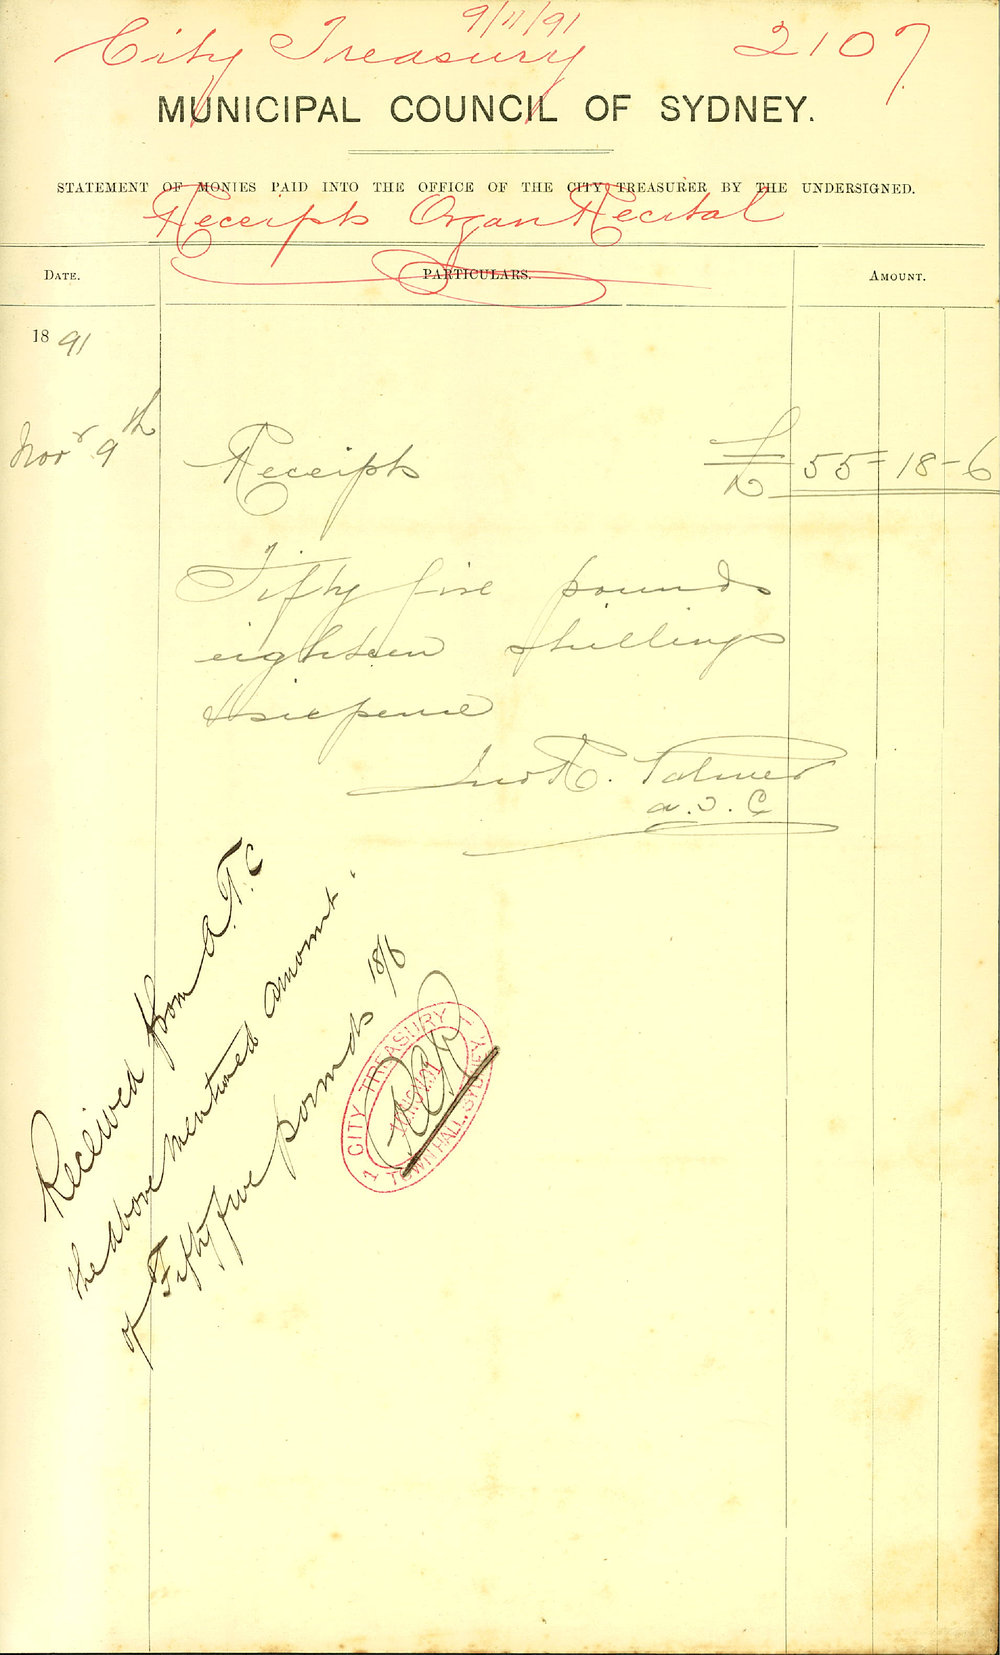 9/11/91
City Treasury 2107
MUNICIPAL COUNCIL OF SYDNEY.
STATEMENT OF MONIES PAID INTO THE OFFICE OF THE CITY TREASURER BY THE UNDERSIGNED.
Receipts Organ Recital
DATE. PARTICULARS. AMOUNT.
18 91
Novr 9th Receipts £ 55-18-6
Fifty five pounds
eighteen shillings
& sixpence
Jno R. Palmer
a.T.C
Received from a.T.C
the above mentioned amount.
of Fifty five pounds 18/6
CITY TREASURY
1 1
TOWN HALL, SYDNEY.